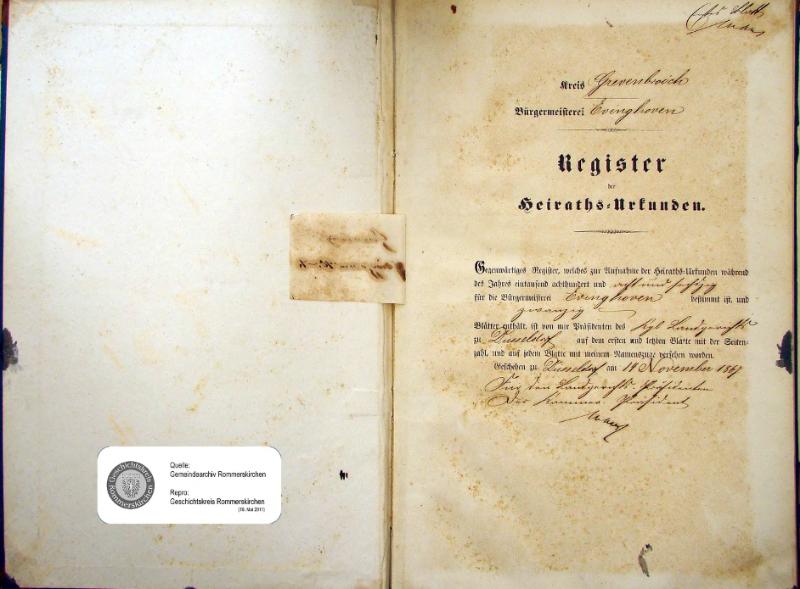 Quelle:
Gemeindearchiv Rommerskirchen
Repro:
Geschichtskreis Rommerskirchen
(16. Mai 2011)
Geschichtskreis
Rommerskirchen
Kreis Grevenbroich
Bürgermeisterei Evinghoven
Register
der
Heiraths-Urkunden.
Gegenwärtiges Register, welches zur Aufnahme der Heiraths-Urkunden während
des Jahres eintausend achthundert und acht und sechzig
für die Bürgermeisterei Evinghoven bestimmt ist, und
zwanzig
Blätter enthält, ist von mir Präsidenten des Kgl Landgerichts
zu Düsseldorf auf dem ersten und letzten Blatte mit der Seiten-
zahl, und auf jedem Blatte mit meinem Namenszuge versehen worden.
Geschehen zu Düsseldorf am 14 November 1867
Für den Landgerichts-Präsidenten
Der Kammer-Präsident